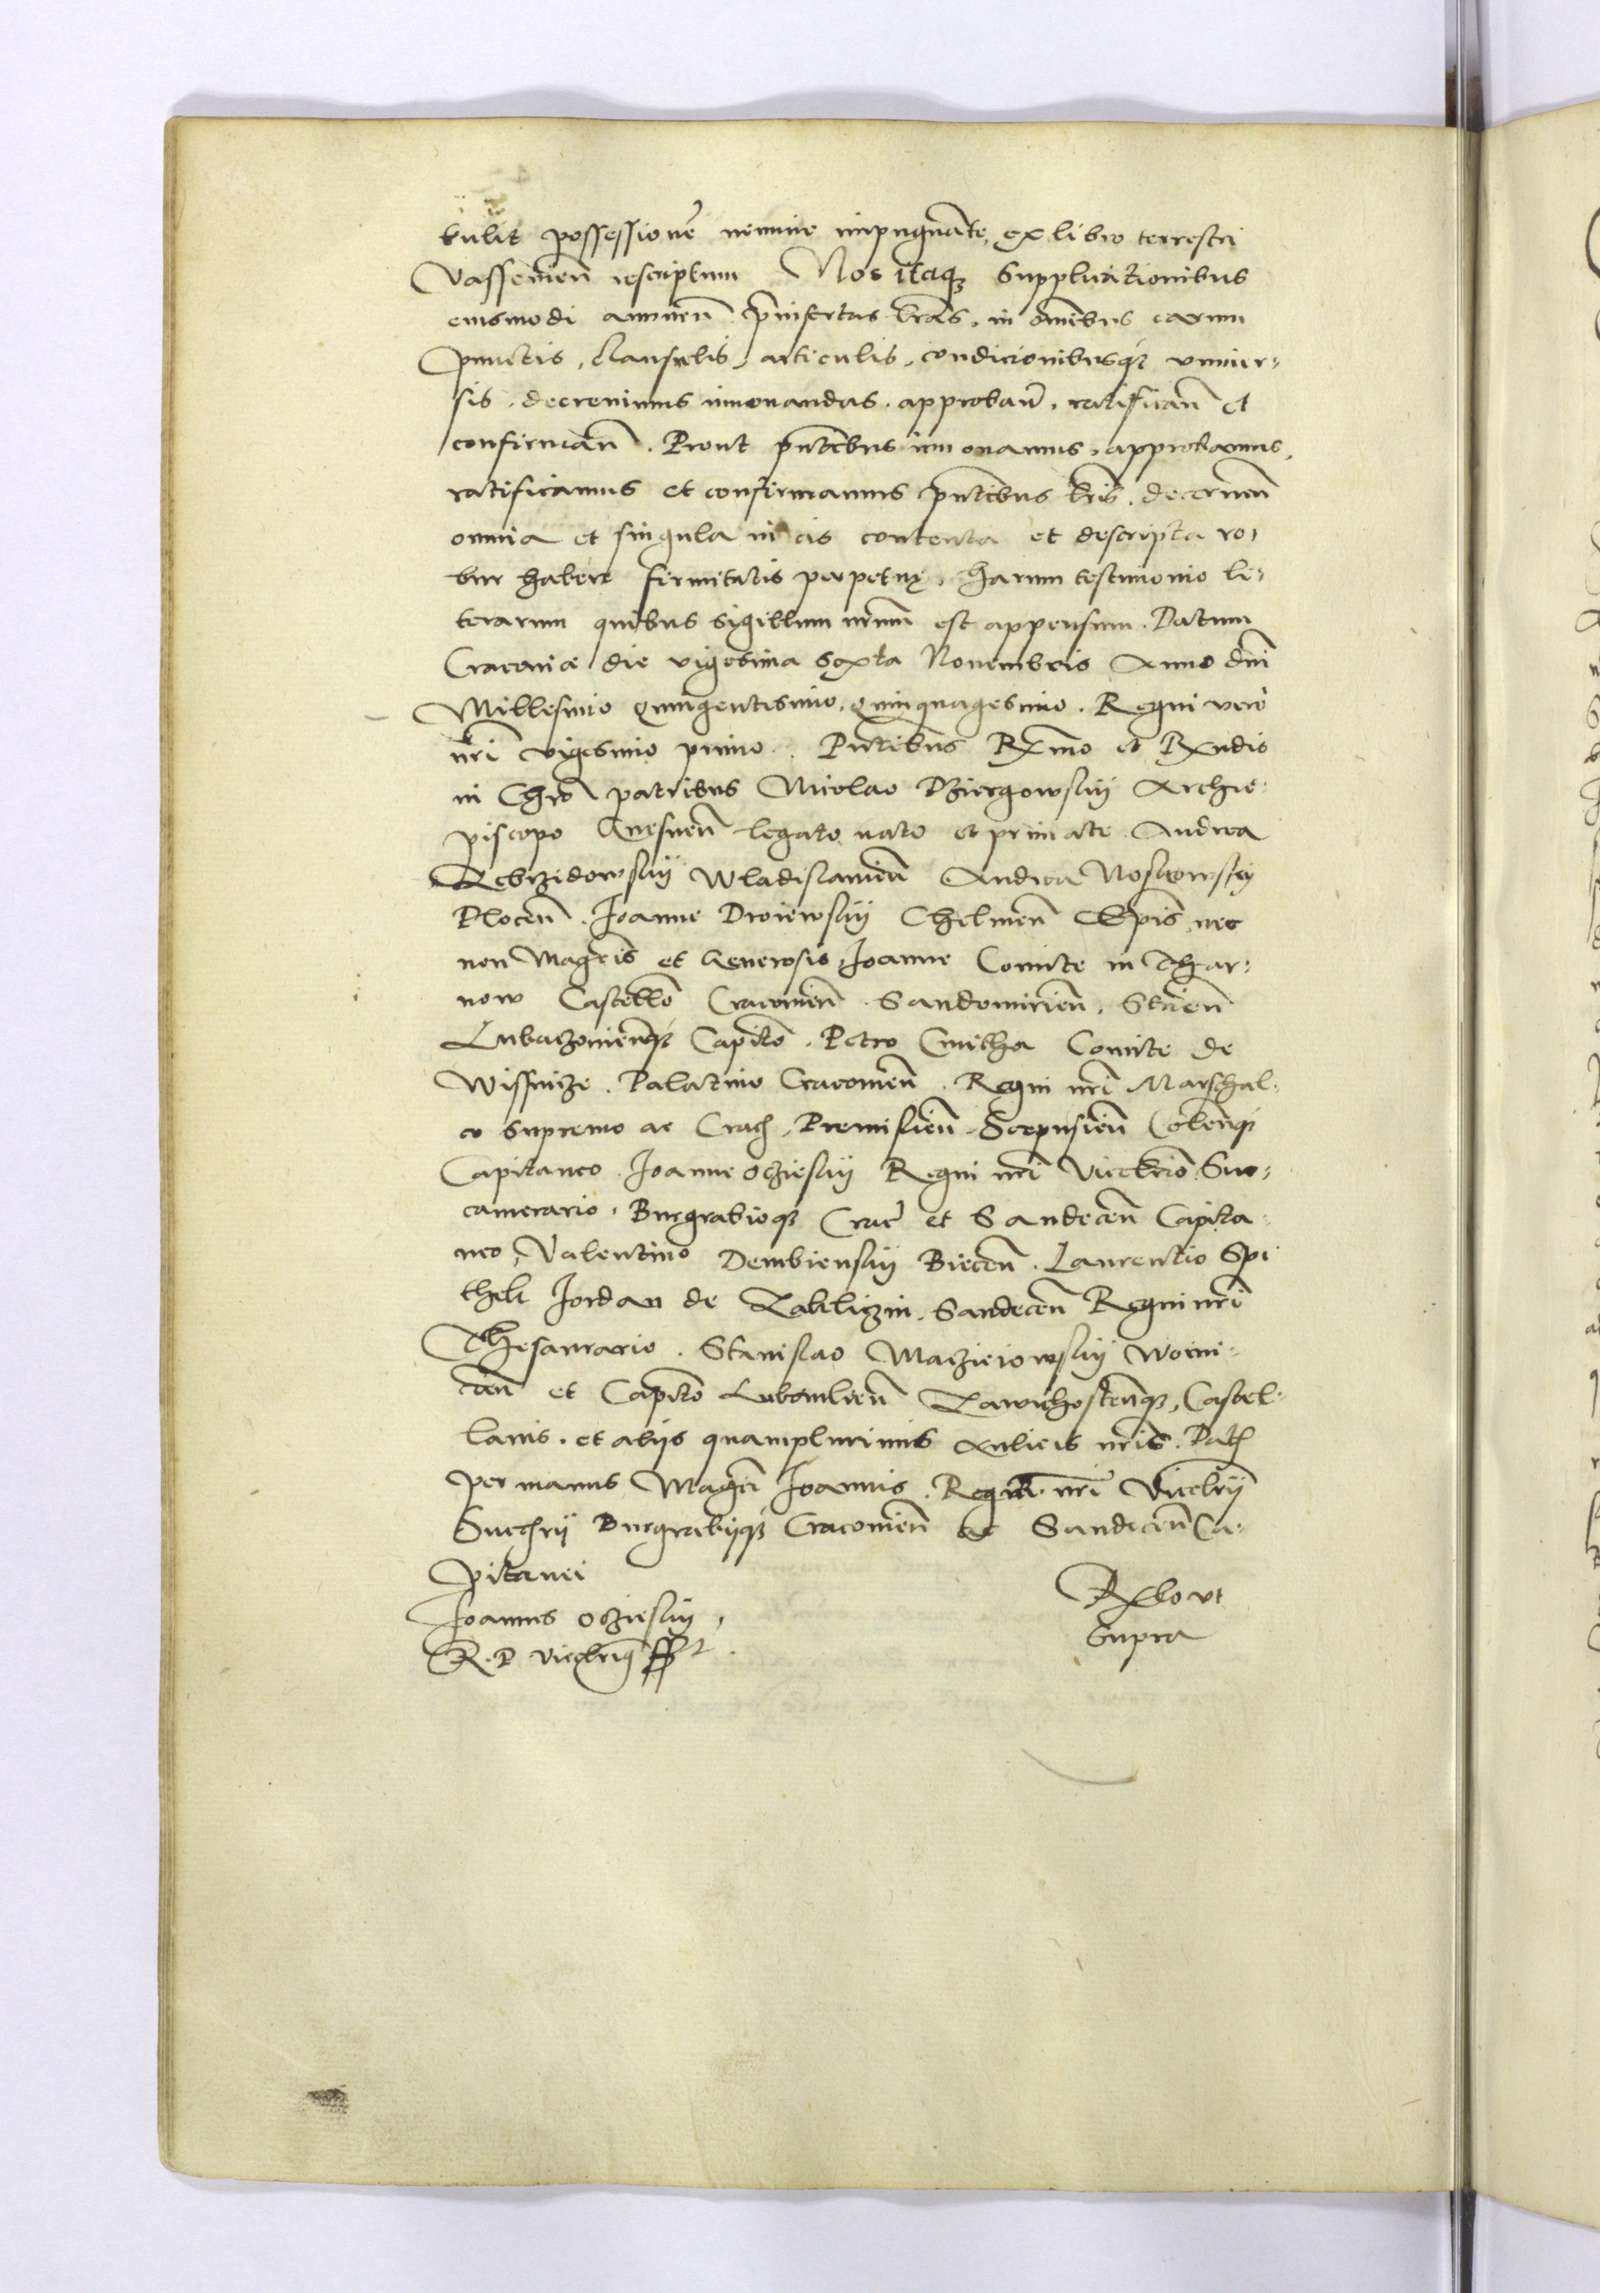 tulit possessionē nemine impugnāte, ex libro terrestri
Varssevien̄ rescriptum Nos itaq₃ Supplicationibus
eiusmodi annuen̄ p̄insertas l̄ras, in om̄ibus earum
punctis, clausulis, articulis, condicionibusq₃ vniuer-
sis, decreuimus innouandas, approban̄, ratifican̄ et
confirman̄. Prout p̄ntibus innouamus, approbamus,
ratificamus et confirmamus p̄ntibus l̄ris, decernen̄
omnia et singula in eis contenta et descripta ro-
bur habere firmitatis perpetuę, harum testimonio le-
terarum quibus sigillum nr̄um est appensum. Datum
Cracoviæ die vigesima sexta Novembris Anno dn̄i
Millesimo quingentesimo quinquagesimo. Regni vero
nr̄i vigesimo primo. Pn̄tibus Rx̄mo et Rx̄ndis
in Chr̄o patribus Nicolao Dziergowskij Archie-
piscopo Gnesnen̄ legato nato et primate. Andrea
Zebrzidowskij Wladislavien̄ Andrea Noskowskij
Plocen̄. Joanne Droiewskij Chelmen̄ Ep̄is, nec
non Maḡcis et Generosis, Joanne Comite in Thar-
now Castell̄o Cracovien̄. Sandomirien̄. Strien̄
Lubaczovien̄q₃ Capit̄o. Petro Cmitha Comite de
Wissnize. Palatino Cracovien̄. Regni nr̄i Marschal-
co supremo ac Crac̄. Premislien̄ Scepusien̄ Colen̄q₃
Capitaneo. Joanne Oczieskij Regni nr̄i Vicecl̄rio Suc-
camerario. Burgrabioq₃ Crac̄ et Sandecen̄ Capita-
neo, Valentino Dembienskij Biecen̄. Laurentio Spi
thek Jordan de Zakliczin. Sandecen̄ Regni nr̄i
Thesaurario. Stanislao Maczieiowskij Woini-
cen̄ et Capit̄o Lubomlien̄ Zawichosten̄q₃, Castel-
lanis. et alijs quamplurimis aulicis nr̄is. Dat̄
per manus Maḡci Joannis. Regni nr̄i Vicecl̄rij
Succ̄rij Burgrabijq₃ Cracovien̄ et Sandecen̄ Ca-
pitanei
Joannes Oczieskij,
R. P. Vicecl̄rius sspt
Rx̄lo ut
supra